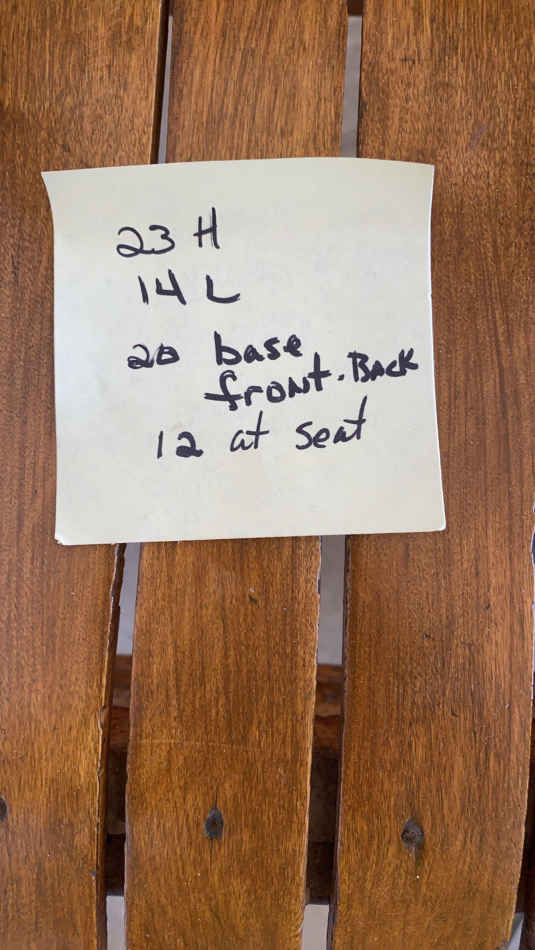 23 H
14 L
20 base
front. Back
12 at seat